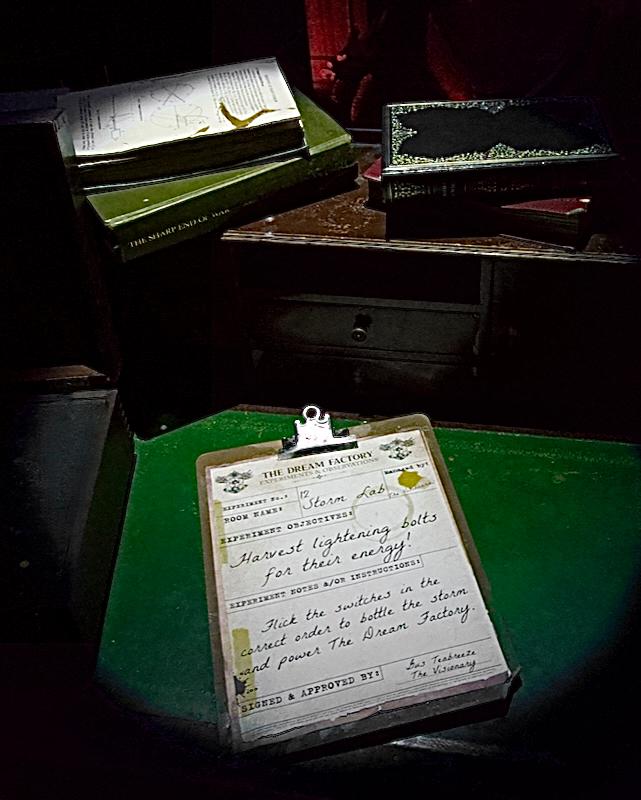 THE SHARP END OF WAR
THE DREAM FACTORY
EXPERIMENTS & OBSERVATIONS
EXPERIMENT No.: 12
MANAGED BY:
ROOM NAME: Storm Lab
EXPERIMENT OBJECTIVES:
Harvest lightening bolts
for their energy!
EXPERIMENT NOTES &/OR INSTRUCTIONS:
Flick the switches in the
correct order to bottle the storm
and power The Dream Factory.
SIGNED & APPROVED BY:
Gus Tenbreeze
The Visionary